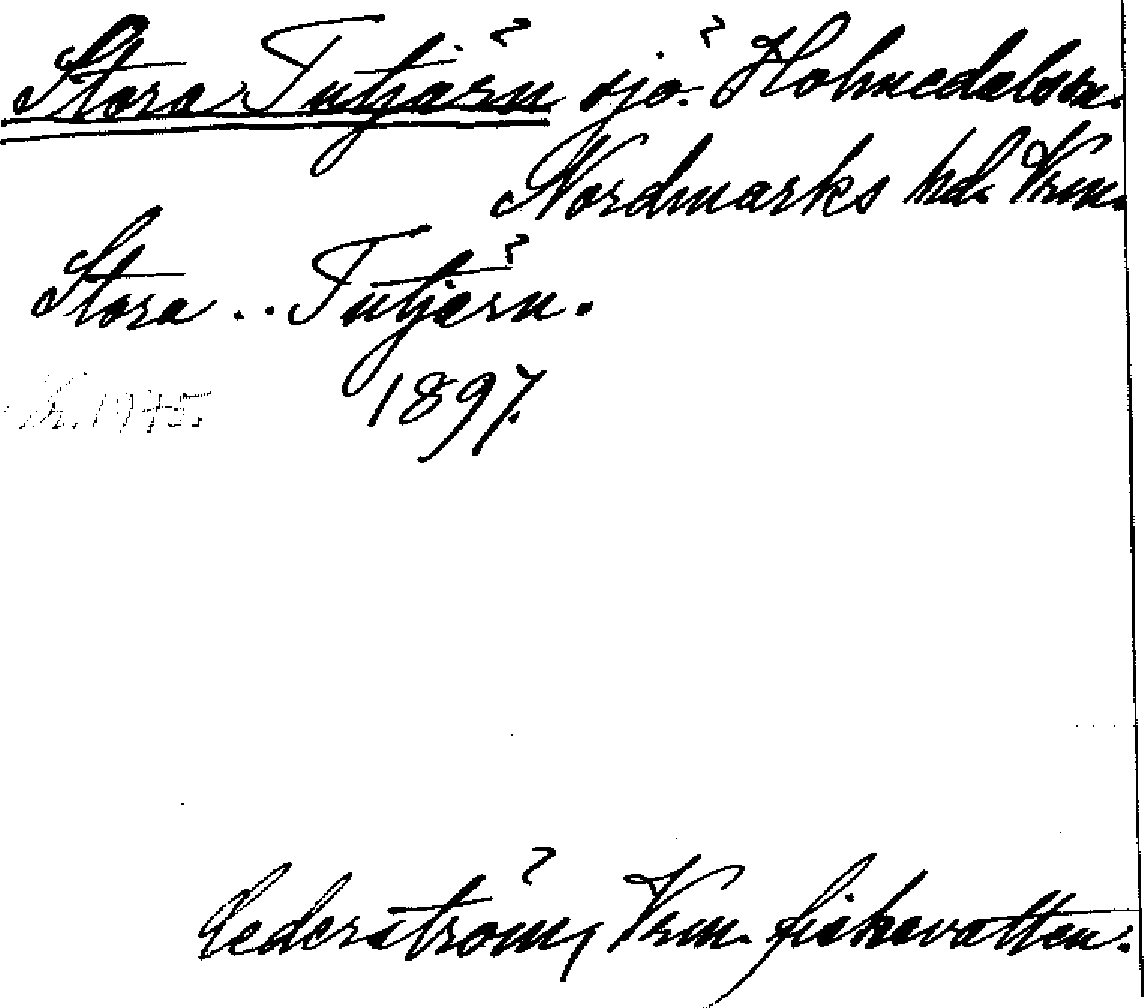 Stora Tutjärn sjö. Holmedals sn.
Nordmarks hd. Vrm.
Stora .. Tutjärn.
1897.
Cederström, Vrm. fiskevatten.